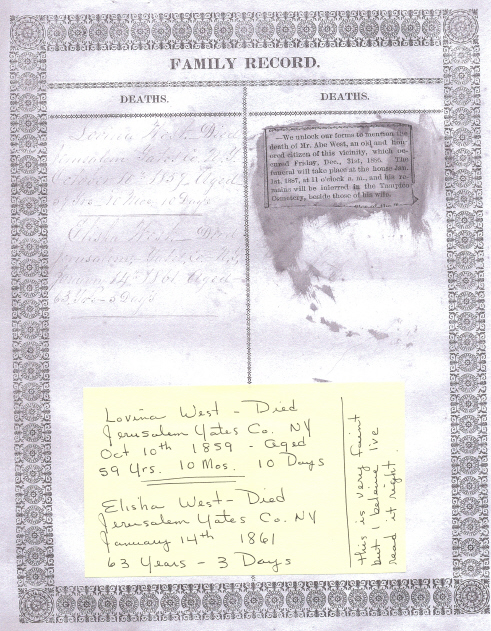 FAMILY RECORD.
DEATHS.
Lovina West – Died
Jerusalem Yates Co N.Y.
1859 Aged
10 Mos 10 Days
Elisha West – Died
Jerusalem Yates Co N.Y.
14th 1861 Aged
63 Yrs – 3 Days
DEATHS.
—We unlock our forms to mention the
death of Mr. Abe West, an old and hon-
ored citizen of this vicinity, which oc-
curred Friday, Dec., 31st, 1886. The
funeral will take place at the house Jan.
1st. 1887, at 11 o'clock a. m., and his re-
mains will be interred in the Tampico
Cemetery, beside those of his wife.
Lovina West – Died
Jerusalem Yates Co. NY
Oct 10th 1859 - aged
59 Yrs. 10 Mos. 10 Days
Elisha West – Died
Jerusalem Yates Co. NY
January 14th 1861
63 Years – 3 Days
this is very faint
but I believe I've
read it right.